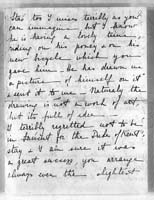 too I miss terribly as you
can immagine but I know
he is having a lovely time,
riding on his poney & on his
new bicycle which you
gave him. He has drawn me
a picture of himself on it
& sent it to me - Naturely the
drawing is not a work of art,
but its full of idea
I terribly regretted not to be
in for the Duke of Kent's
stay & I am sure it was
a great success, you arrange
always even the slightest